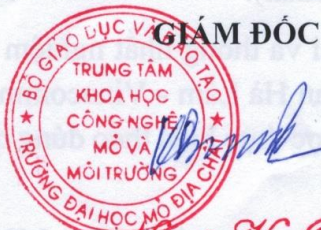 GIÁM ĐỐC
BỘ GIÁO DỤC VÀ ĐÀO TẠO
TRUNG TÂM
KHOA HỌC
CÔNG NGHỆ
MỎ VÀ
MÔI TRƯỜNG
TRƯỜNG ĐẠI HỌC MỎ ĐỊA CHẤT